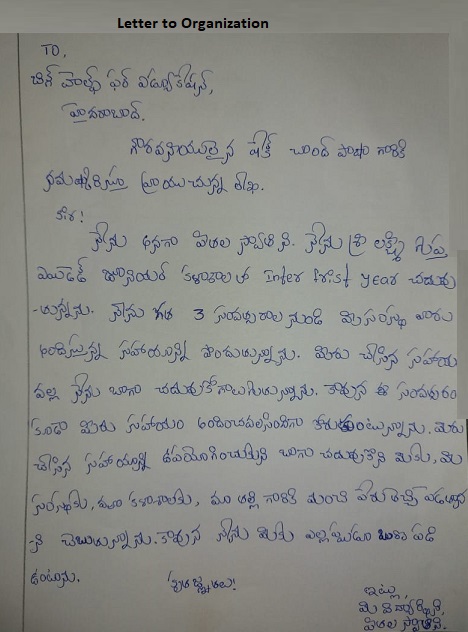 Letter to Organization
TO,
బిగ్ హెల్ప్ ఫర్ ఎడ్యుకేషన్,
హైదరాబాద్.
గౌరవనియులైన షేక్ చాంద్ పాషా గారికి
నమస్కరిస్తూ వ్రాయుచున్న లేఖ.
సార్!
నేను అనగా పితల స్వాతిని. నేను శ్రీ లక్ష్మి
జూనియర్ కళాశాలలో Inter First year చదువు
-తున్నను. నేను గత 3 సంవత్సరాల నుండి మీ సంస్థ వారు
అందిస్తున్న సహాయాన్ని పొందుతున్నాను. మీరు చేసిన సహాయం
వల్ల నేను బాగా చదువుకోగలుగుతున్నాను. కావున ఈ సంవత్సరం
కూడా మీరు సహాయం అందించవలసిందిగా కోరుకుంటున్నాను. మీరు
చేసిన సహాయాన్ని ఉపయోగించుకుని బాగా చదువుకొని మీకు, మీ
సంస్థకు, మా కళాశాలకు, మా తల్లి గారికి మంచి పేరు తెచ్చి పెడతాన
-ని చెబుతున్నాను. కావున నేను మీకు ఎల్లప్పుడూ ఋణ పడి
ఉంటాను.
కృతజ్ఞతలు!
ఇట్లు,
మీ విద్యార్థిని,
పితల స్వాతిని.